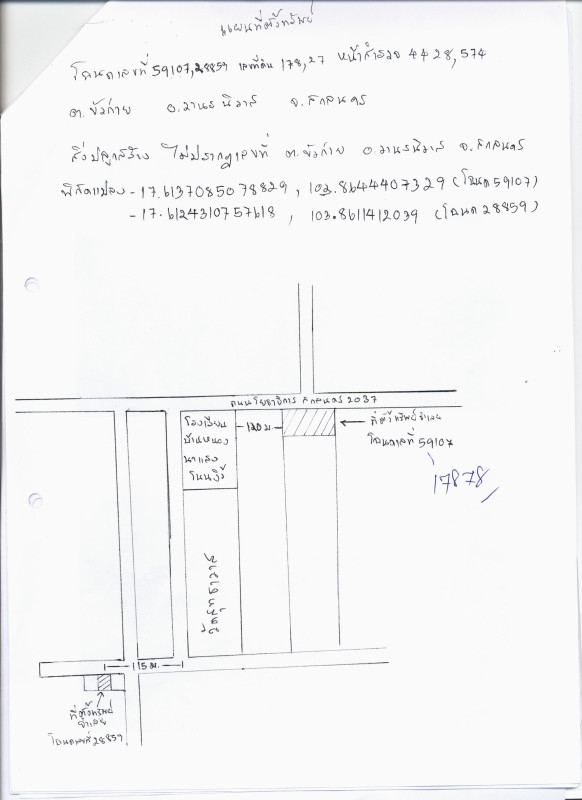 แผนที่ตั้งทรัพย์
โฉนดเลขที่ 59107,28859 เลขที่ดิน 178,27 หน้าสำรวจ 4428,574
ต.ขัวก่าย อ.วานรนิวาส จ.สกลนคร
สิ่งปลูกสร้าง ไม่ปรากฏเลขที่ ต.ขัวก่าย อ.วานรนิวาส จ.สกลนคร
พิกัดแปลง - 17.6137085078829, 103.8644407329 (โฉนด 59107)
- 17.6124310757618, 103.8611412039 (โฉนด 28859)
ถนนโยธาธิการ สกลนคร 2037
โรงเรียน
บ้านหนอง
นาแซง
โนนงิ้ว
120 ม.
ที่ตั้งทรัพย์จำเลย
โฉนดเลขที่ 59107
17878
115 ม.
ที่ตั้งทรัพย์
จำเลย
โฉนดเลขที่ 28859